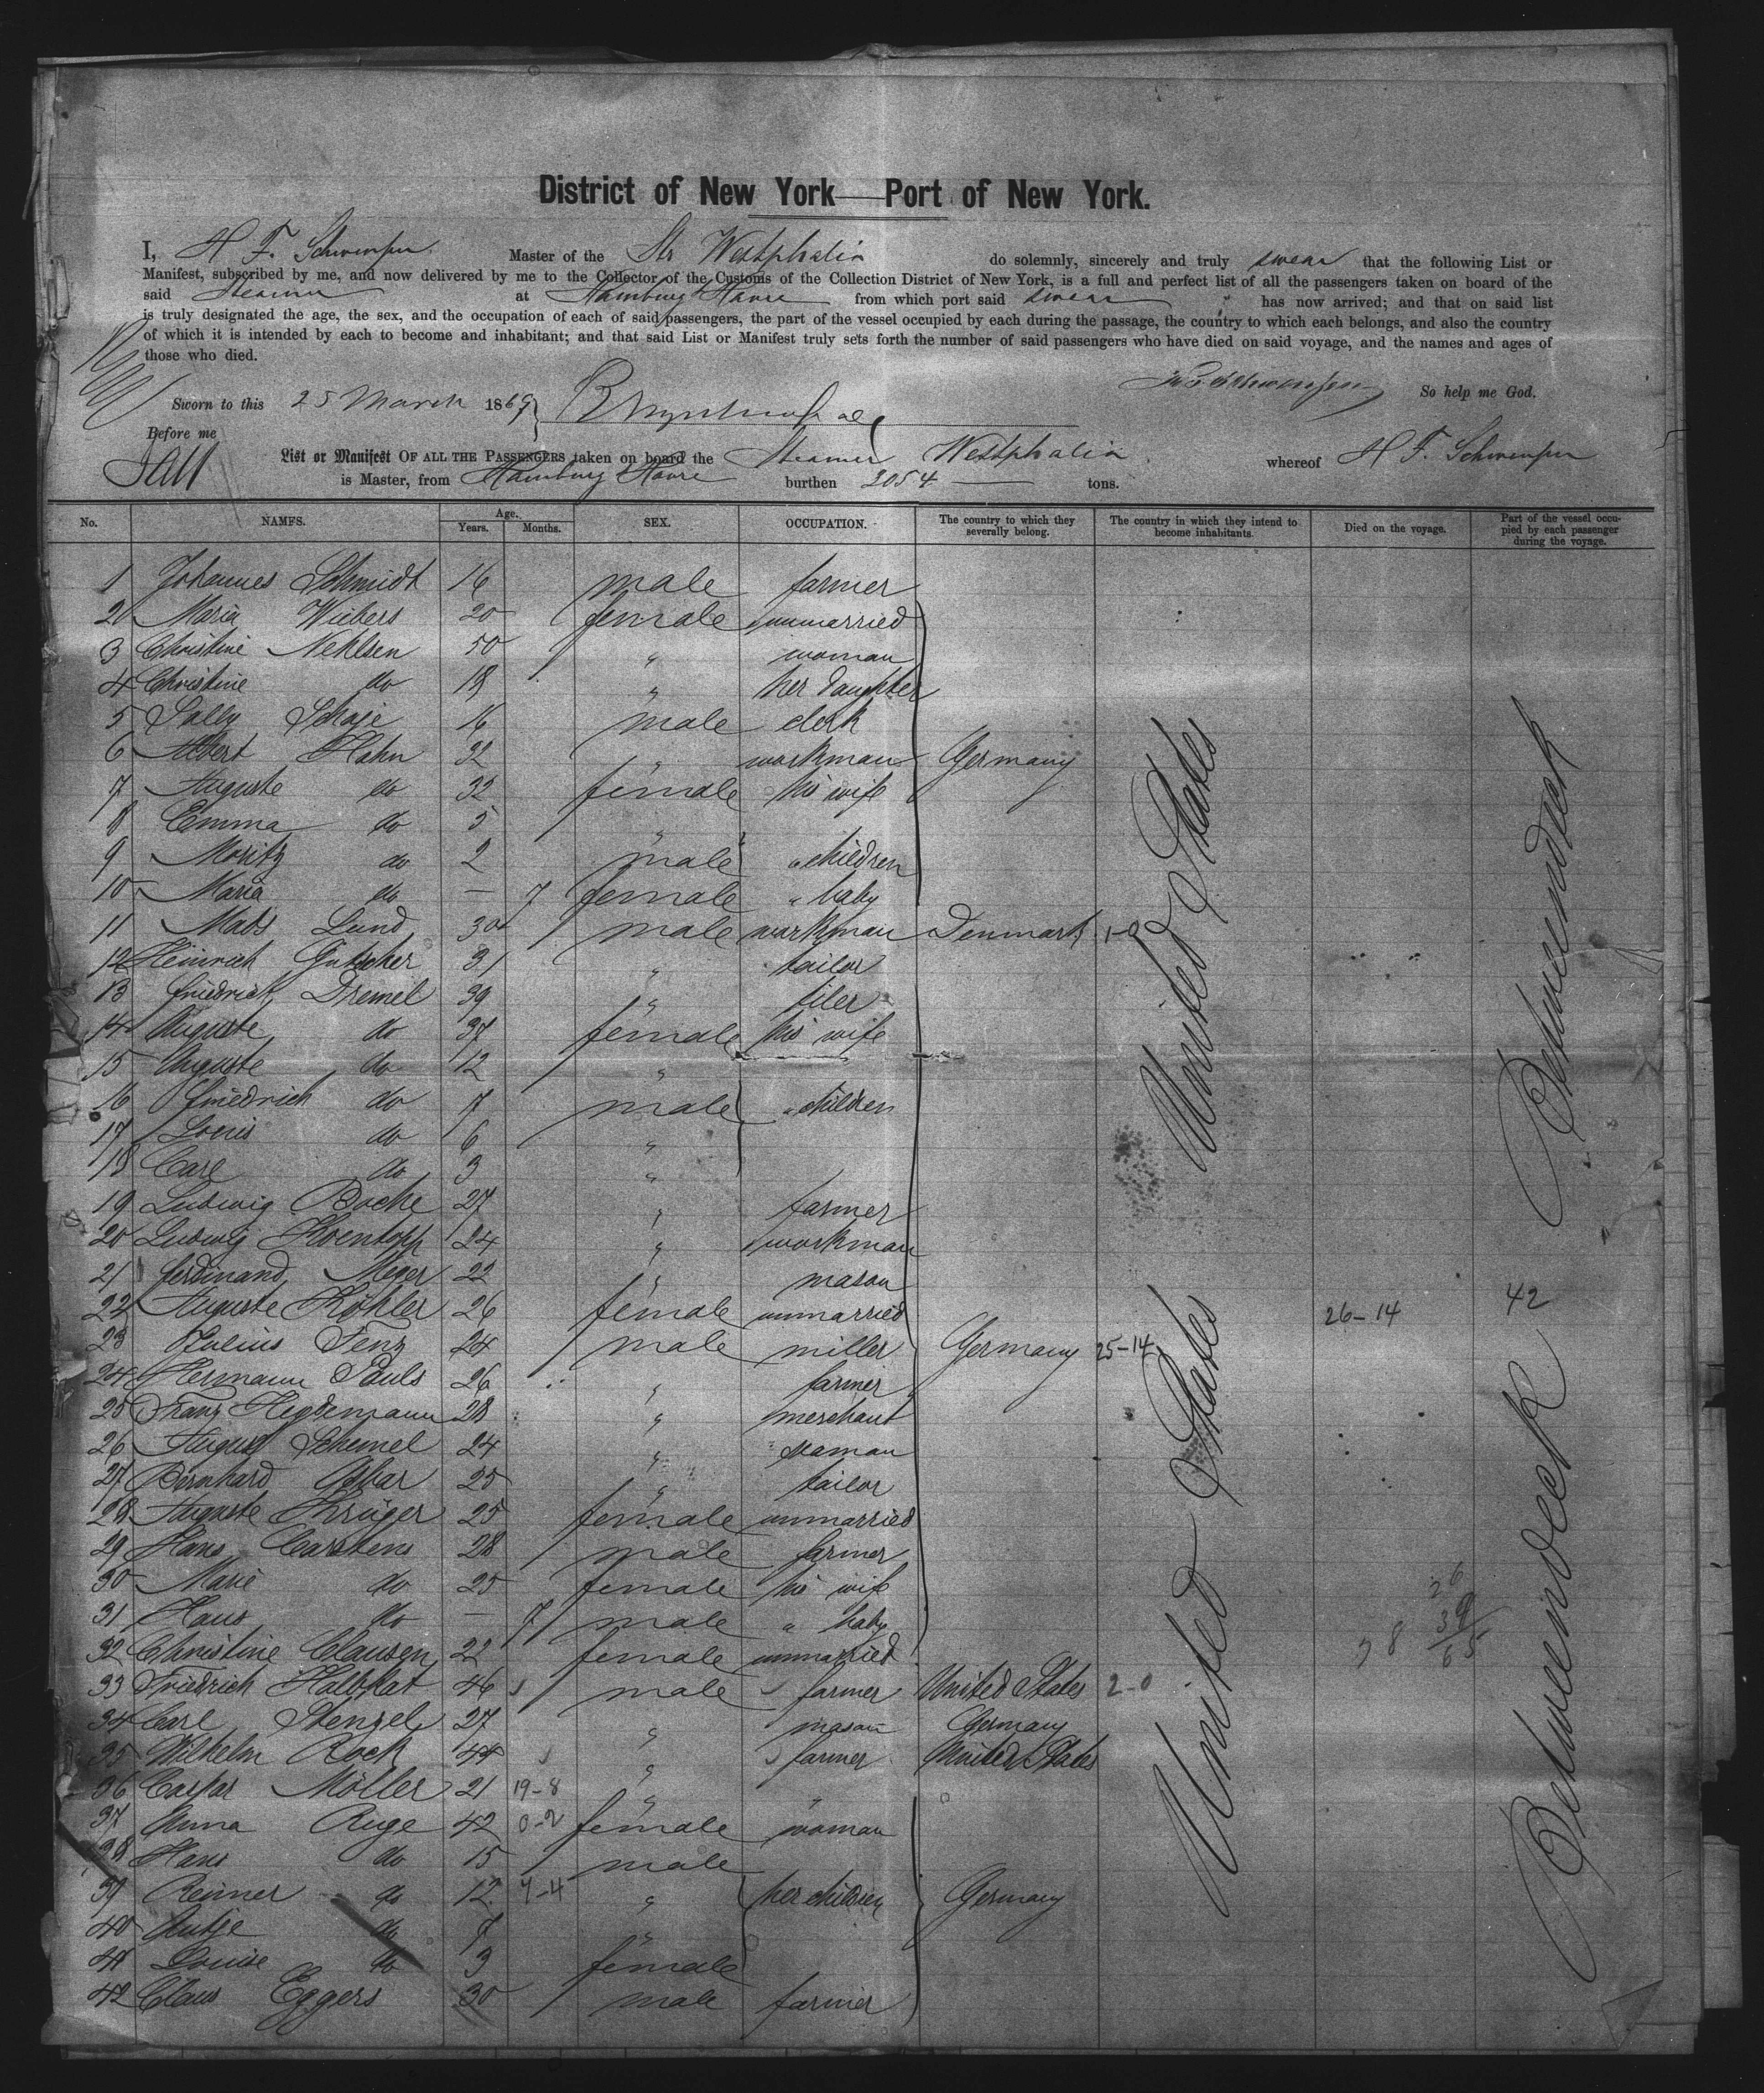 District of New York—Port of New York.
I, H. F. Schwensen Master of the Str Westphalia do solemnly, sincerely and truly swear that the following List or
Manifest, subscribed by me, and now delivered by me to the Collector of the Customs of the Collection District of New York, is a full and perfect list of all the passengers taken on board of the
said Steamer at Hamburg & Havre from which port said swear has now arrived; and that on said list
is truly designated the age, the sex, and the occupation of each of said passengers, the part of the vessel occupied by each during the passage, the country to which each belongs, and also the country
of which it is intended by each to become and inhabitant; and that said List or Manifest truly sets forth the number of said passengers who have died on said voyage, and the names and ages of
those who died.
So help me God.
Sworn to this 25 March 1869
Before me
List or Manifest OF ALL THE PASSENGERS taken on board the Steamer Westphalia whereof H. F. Schwensen
is Master, from Hamburg & Havre burthen 2054 tons.
No. NAMES. Age. Years. Months. SEX. OCCUPATION. The country to which they severally belong. The country in which they intend to become inhabitants. Died on the voyage. Part of the vessel occupied by each passenger during the voyage.
1 Johannes Schmidt 16 male farmer
2 Maria Wiebers 20 female unmarried
3 Christine Nehlsen 50 " woman
4 Christine do 18 " her daughter
5 Sally Schaje 16 male clerk
6 Albert Hahn 32 " workman Germany
7 Auguste do 32 female his wife
8 Emma do 5 "
9 Moritz do 2 male " children
10 Maria do — 7 female " baby
11 Mads Lund 30 male workman Denmark 1-0
12 Heinrich Gutscher 31 " tailor
13 Friedrich Dremel 39 " tiler
14 Auguste do 37 female his wife
15 Auguste do 12 "
16 Friedrich do 7 male " children
17 Louis do 6 "
18 Carl do 3 "
19 Ludwig Bocke 27 " farmer
20 Ludwig Koentopp 24 " workman
21 Ferdinand Meger 22 " mason
22 Auguste Köhler 26 female unmarried 26-14 42
23 Julius Fenz 24 male miller Germany 25-14
24 Hermann Pauls 26 " farmer
25 Franz Hegdemann 28 " merchant
26 August Schemel 24 " seaman
27 Bernhard Aspar 25 " tailor
28 Auguste Krüger 25 female unmarried
29 Hans Carstens 28 male farmer
30 Marie do 25 female his wife
31 Hans do — 7 male " baby
32 Christine Clausen 22 female unmarried
33 Friedrich Halbkat 46 male farmer United States 2-0
34 Carl Stenzel 27 " mason Germany
35 Wilhelm Rock 44 " farmer United States
36 Caspar Möller 21 19-8 " "
37 Anna Ruge 42 0-2 female woman
38 Hans do 15 male
39 Reimer do 12 4-4 " her children Germany
40 Antje do 7 "
41 Louise do 3 female
42 Claus Eggers 30 male farmer
United States
United States
Betweendeck
Betweendeck
26
39
65